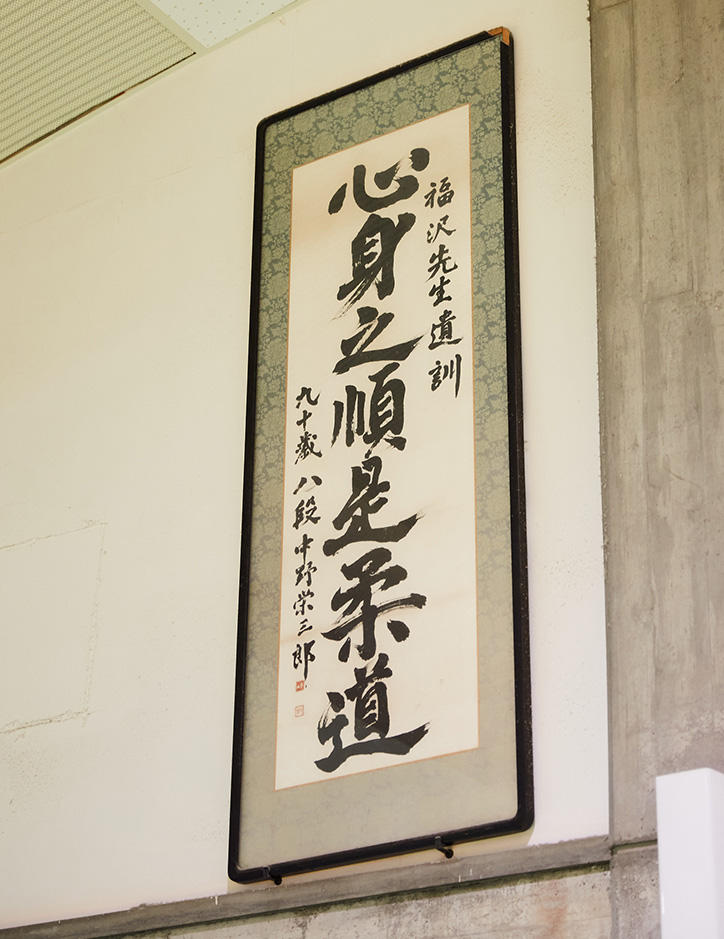 福沢先生遺訓
心身之順是柔道
九十歳 八段 中野栄三郎